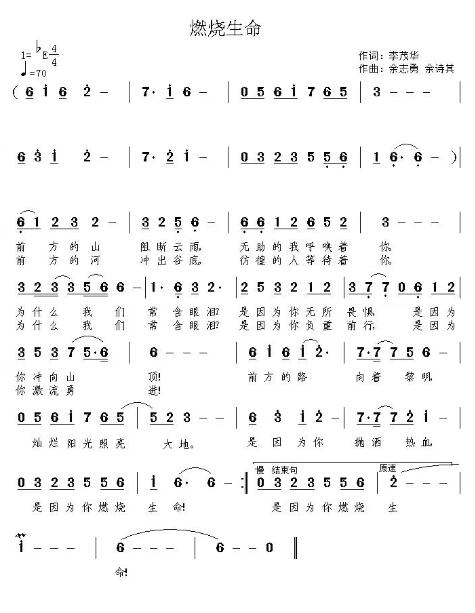 燃烧生命
1=♭E 4/4
♩=70
作词：李茂华
作曲：余志勇 余诗其
( 6 1 6 2 - | 7· 1 6 - | 0 5 6 1 7 6 5 | 3 - - - |
6 3 1 2 - | 7· 2 1 - | 0 3 2 3 5 5 6 | 1 6· 6 - )
6 1 2 3 2 - | 3 2 5 6 - | 0 6 6 1 2 6 5 2 | 3 - - - |
前 方 的 山 阻 断 云 雨, 无 助 的 我 呼 唤 着 你。
前 方 的 河 冲 出 谷 底。 彷 徨 的 人 等 待 着 你。
为 什 么 我 们 常 含 眼 泪? 是 因 为 你 无 所 畏 惧, 是 因 为
为 什 么 我 们 常 含 眼 泪? 是 因 为 你 负 重 前 行, 是 因 为
3 5 3 7 5· 6 | 6 - - - | 6 1 6 1 2· | 7· 7 7 5 - |
你 冲 向 山 顶! 前 方 的 路 向 着 黎 明,
你 激 流 勇 进!
0 5 6 1 7 6 5 | 5 2 3 - - | 6 3 1 - | 7· 7 2 1 - |
灿 烂 阳 光 照 亮 大 地。 是 因 为 你 抛 洒 热 血
慢 结束句 原速
0 3 2 3 5 5 5 | 1 6 - - | 6 - - - :| 0 3 2 3 5 5 5 | 2 - - |
是 因 为 你 燃 烧 生 命! 是 因 为 你 燃 烧 生
1 - - - | 6 - - - | 6 - - 0 ‖
命!